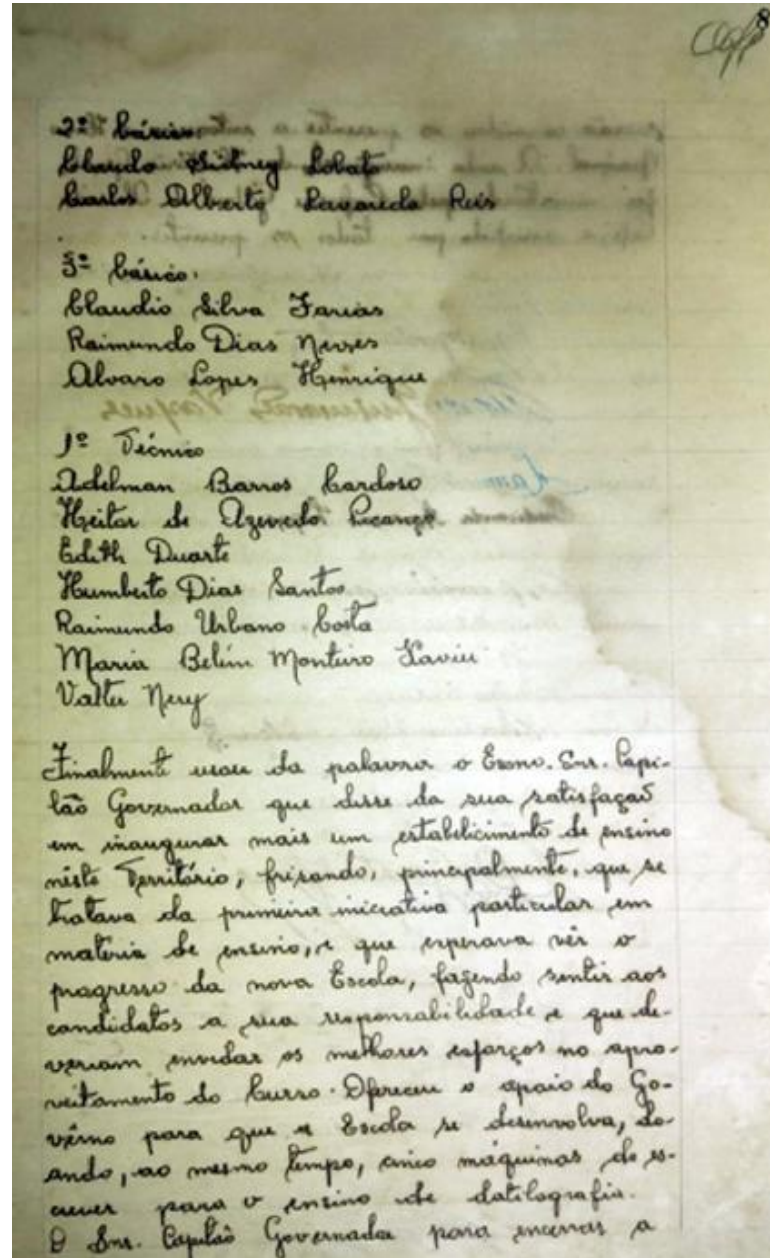 8
2º básico.
Claudo Sidney Lobato
Carlos Alberto Lavareda Reis
3º básico.
Claudio Silva Farias
Raimundo Dias Neves
Alvaro Lopes Henrique
1º Técnico
Adelman Barros Cardoso
Heitor de Azevedo Picanço
Edith Duarte
Humberto Dias Santos
Raimundo Urbano Costa
Maria Belém Monteiro Xavier
Valter Nery
Finalmente usou da palavra o Exmo. Snr. Capi-
tão Governador que disse da sua satisfação
em inaugurar mais um estabelicimento de ensino
nêste Território, frisando, principalmente, que se
tratava da primeira iniciativa particular em
matéria de ensino, e que esperava vêr o
progresso da nova Escola, fazendo sentir aos
candidatos a sua responsabilidade e que de-
veriam envidar os melhores esforços no apro-
veitamento do Curso. Ofereceu o apoio do Go-
vêrno para que a Escola se desenvolva, do-
ando, ao mesmo tempo, cinco máquinas de es-
crever para o ensino de datilografia.
O Snr. Capitão Governador para encerrar a